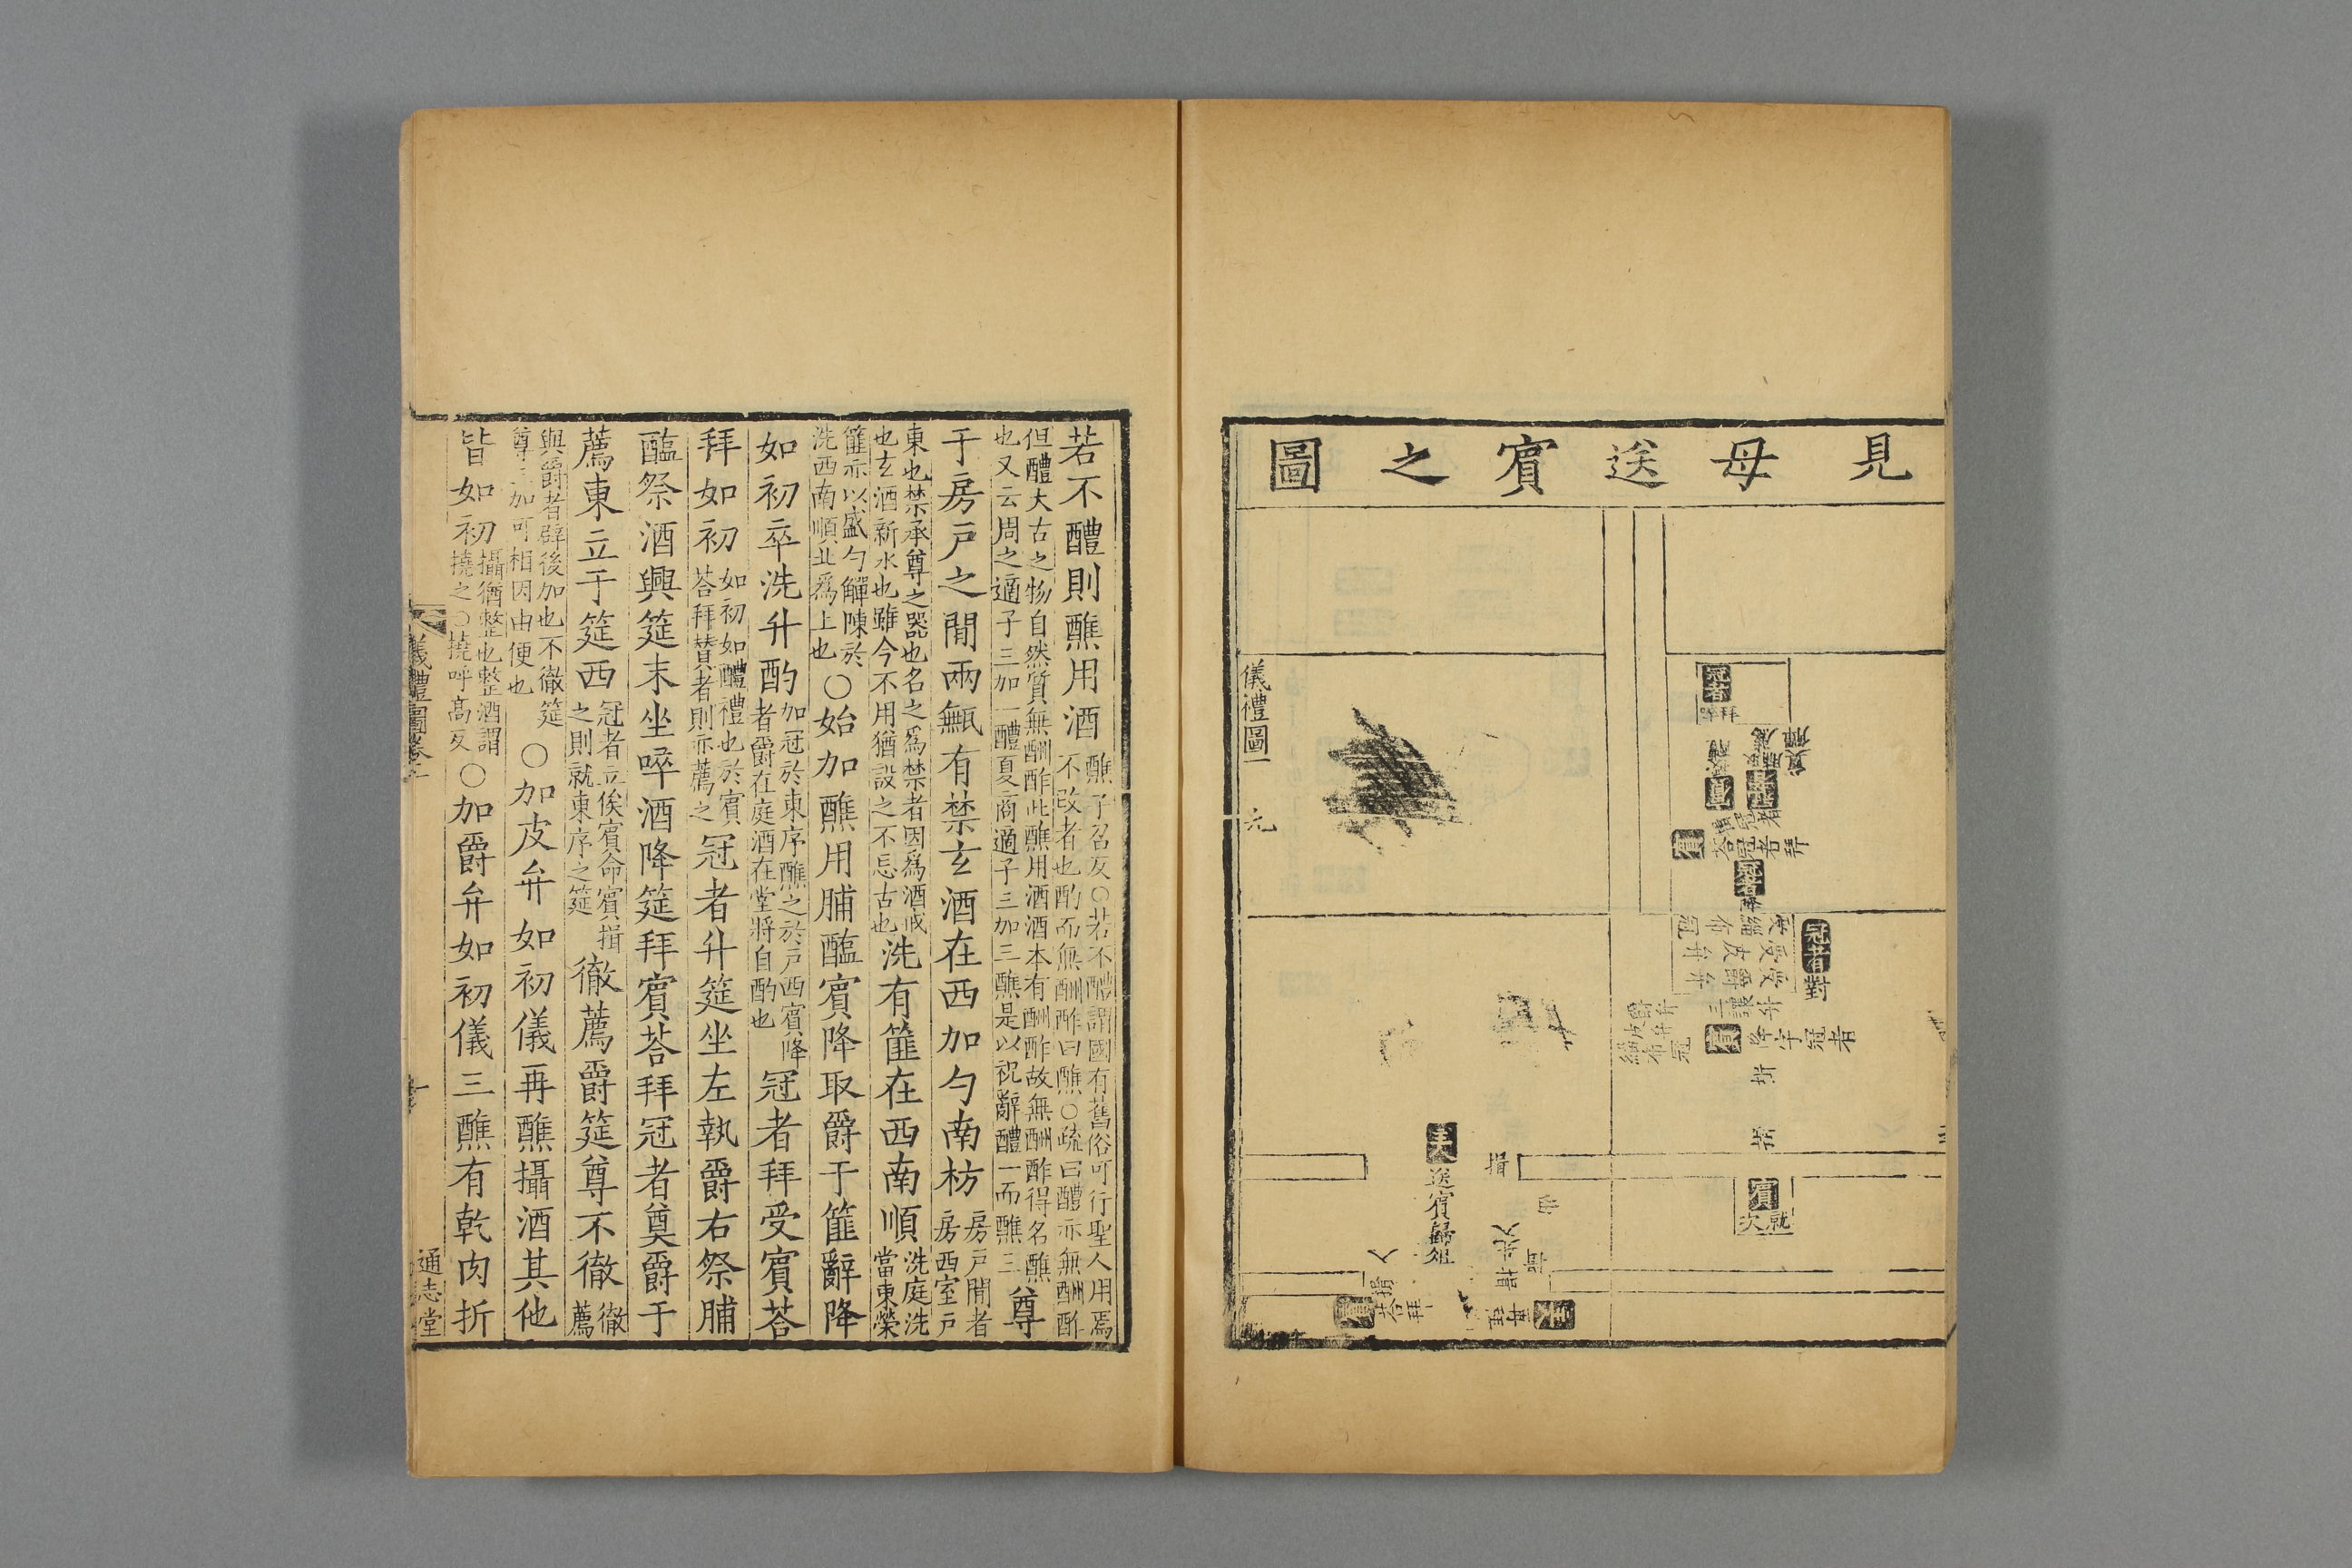 見母送賓之圖
冠者
冠者對
受爵弁
受皮弁
受緇布冠
賓
字冠者
賓
就次
主人
送賓歸俎
揖
賓
答拜
儀禮圖一
若不醴則醮用酒
醮子召反○若不醴謂國有舊俗可行聖人用焉
不改者也酌而無酬酢曰醮○疏曰醴亦無酬酢
但醴大古之物自然質無酬酢此醮用酒酒本有酬酢故無酬酢得名醮
也又云周之適子三加一醴夏商適子三加三醮是以祝辭醴一而醮三
尊
于房戶之閒兩甒有禁玄酒在西加勺南枋
房戶閒者
房西室戶
東也禁承尊之器也名之爲禁者因爲酒戒
也玄酒新水也雖今不用猶設之不忘古也
洗有篚在西南順
洗庭洗
當東榮
篚亦以盛勺觶陳於
洗西南順北爲上也
○始加醮用脯醢賓降取爵于篚辭降
如初卒洗升酌
加冠於東序醮之於戶西賓降
者爵在庭酒在堂將自酌也
冠者拜受賓荅
拜如初
如初如醴禮也於賓
荅拜贊者則亦薦之
冠者升筵坐左執爵右祭脯
醢祭酒興筵末坐啐酒降筵拜賓荅拜冠者奠爵于
薦東立于筵西
冠者立俟賓命賓揖
之則就東序之筵
徹薦爵筵尊不徹
徹
薦
與爵者辟後加也不徹筵
尊三加可相因由便也
○加皮弁如初儀再醮攝酒其他
皆如初
攝猶整也整酒謂
撓之○撓呼高反
○加爵弁如初儀三醮有乾肉折
儀禮圖卷一
十
通志堂